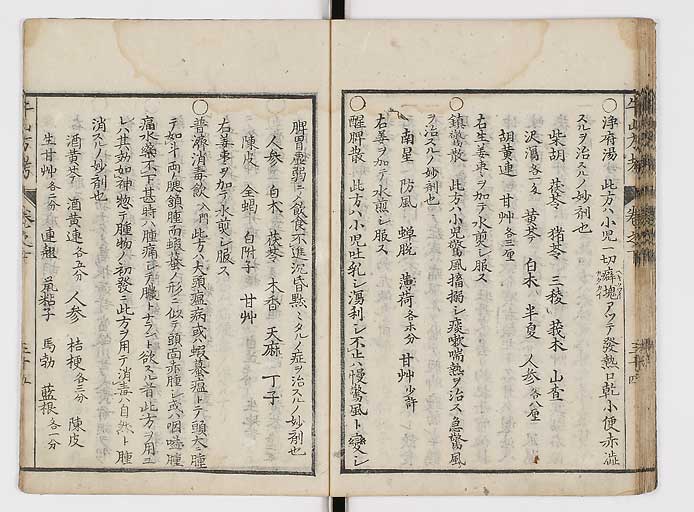 ○浄府湯 此方ハ小児一切癖塊アツテ發熱口乾小便赤澁
スルヲ治スルノ妙剤也
柴胡 茯苓 猪苓 三稜 莪朮 山査
沢瀉 各一匁 黄芩 白朮 半夏 人参 各八厘
胡黄連 甘艸 各三厘
右生姜枣ヲ加テ水煎シ服ス
○鎮驚散 此方ハ小児驚風搐搦シ痰嗽喘熱ヲ治ス急驚風
ヲ治スルノ妙剤也
南星 防風 蝉脱 薄荷 各水分 甘艸少許
右姜ヲ加テ水煎シ服ス
○醒脾散 此方ハ小児吐乳シ瀉利シ不止ハ慢驚風ト変シ
脾胃虚弱ニノ飲食不進沉昏黙々タルノ症ヲ治スルノ妙剤也
人参 白朮 茯苓 木香 天麻 丁子
陳皮 全蝎 白附子 甘艸
右姜枣ヲ加テ水煎シ服ス
○普濟消毒飲 入門 此方ハ大頭瘟病或ハ蝦蟇瘟トテ頭大ニ腫
テ如斗両腮頷腫而蝦蟇ノ形ニ似テ頭面赤腫シ或ハ咽嗌腫
痛水藥不下甚時ハ腫痛シテ膿トナラント欲スル者此方ヲ用ユ
レハ其効如神惣テ腫物ノ初發ニ此方ヲ用テ消毒ハ自然ト腫
消スルノ妙剤也
酒黄芩 酒黄連 各五分 人参 桔梗 各三分 陳皮
生甘艸 各二分 連翹 鼠粘子 馬勃 藍根 各一分